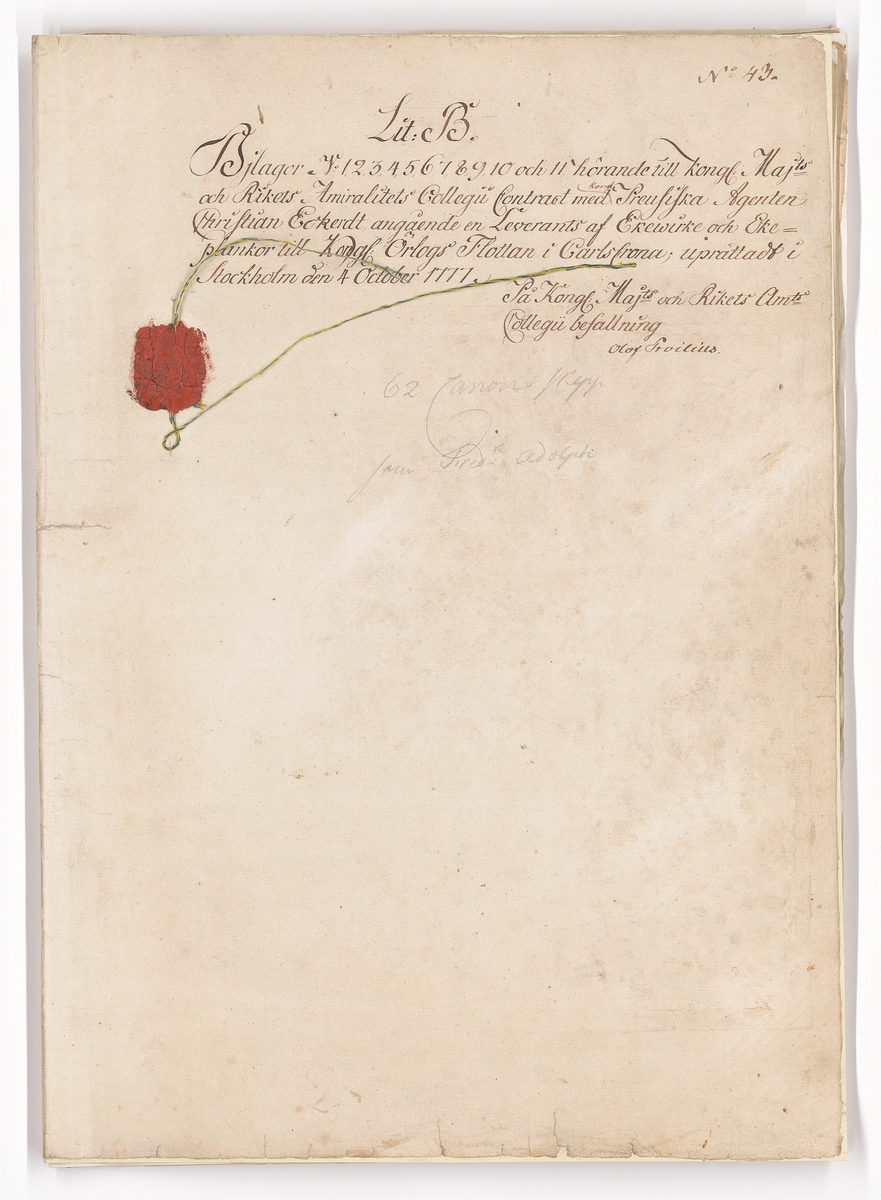 N.o 43.
Lit: B.
Bjlagor N.o 1 2 3, 4, 5, 6, 7, 8, 9, 10 och 11 hörande till Kongl. Maj.ts
och Rikets Amiralitets Collegii Contract med Kongl. Preusiska Agenten
Christian Eckerdt angående en Leverants af Ekewirke och Eke=
plankor till Kongl. Örlogs Flottan i Carlskrona; uprättadt i
Stockholm den 4 October 1777.
På Kongl. Maj.ts och Rikets Am.ts
Collegii befallning
Olof Troilius.
62 Canons skepp
som Fred. Adolphi